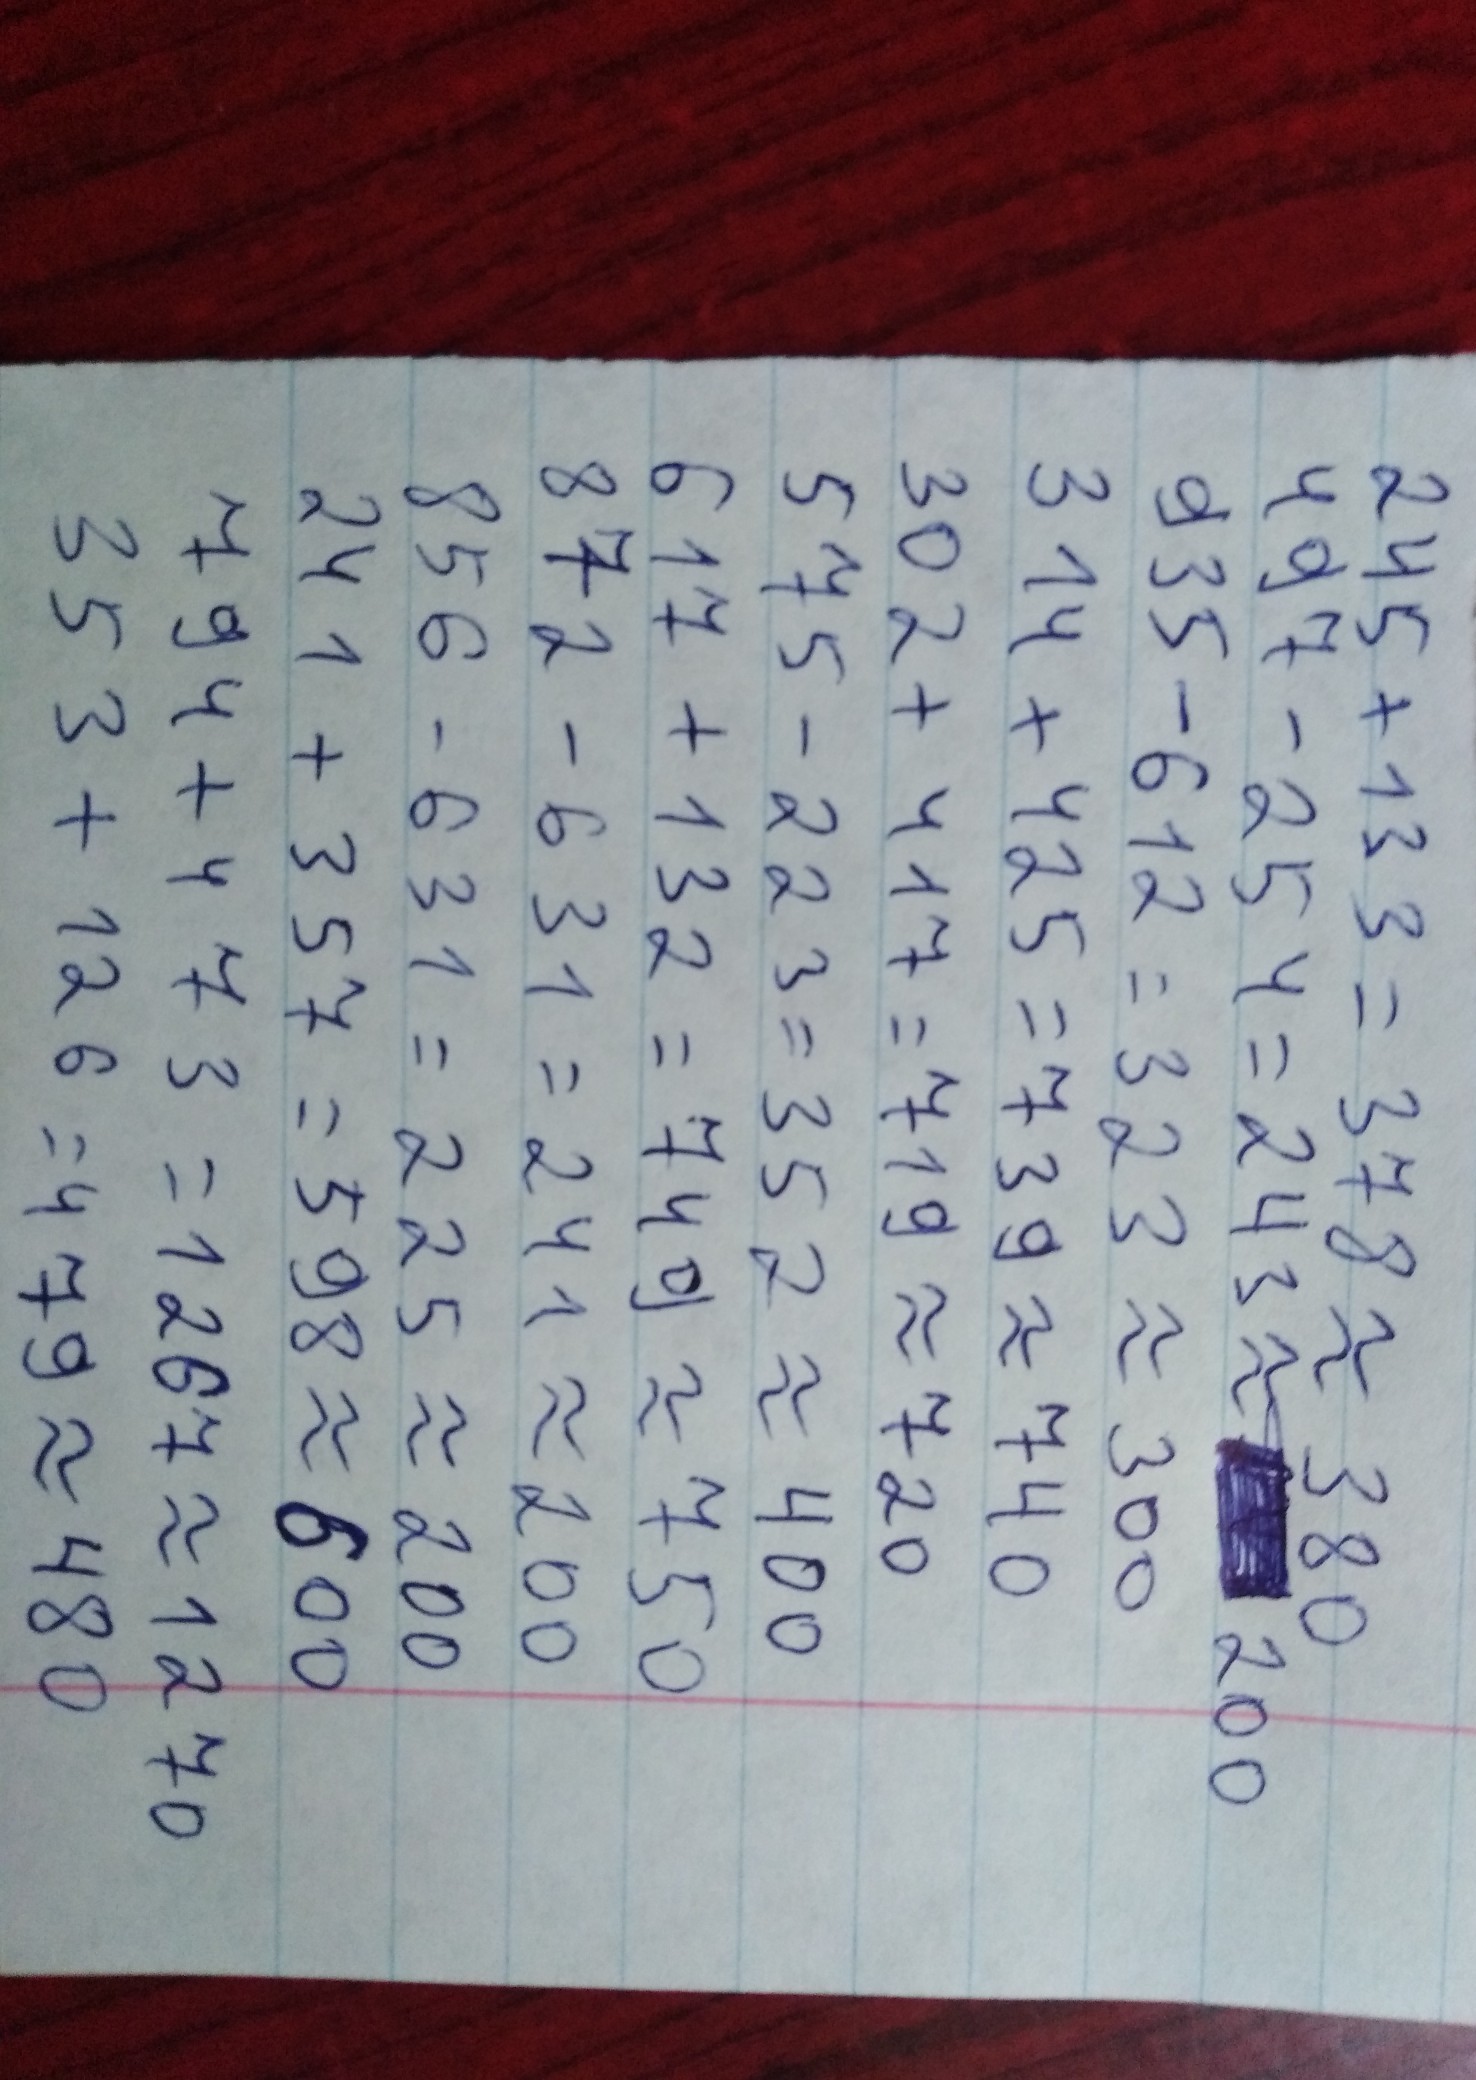 245+133=378≈380
497-254=243≈ 200
935-612=323≈300
314+425=739≈740
302+417=719≈720
575-223=352≈400
617+132=749≈750
872-631=241≈200
856-631=225≈200
241+357=598≈600
794+473=1267≈1270
353+126=479≈480